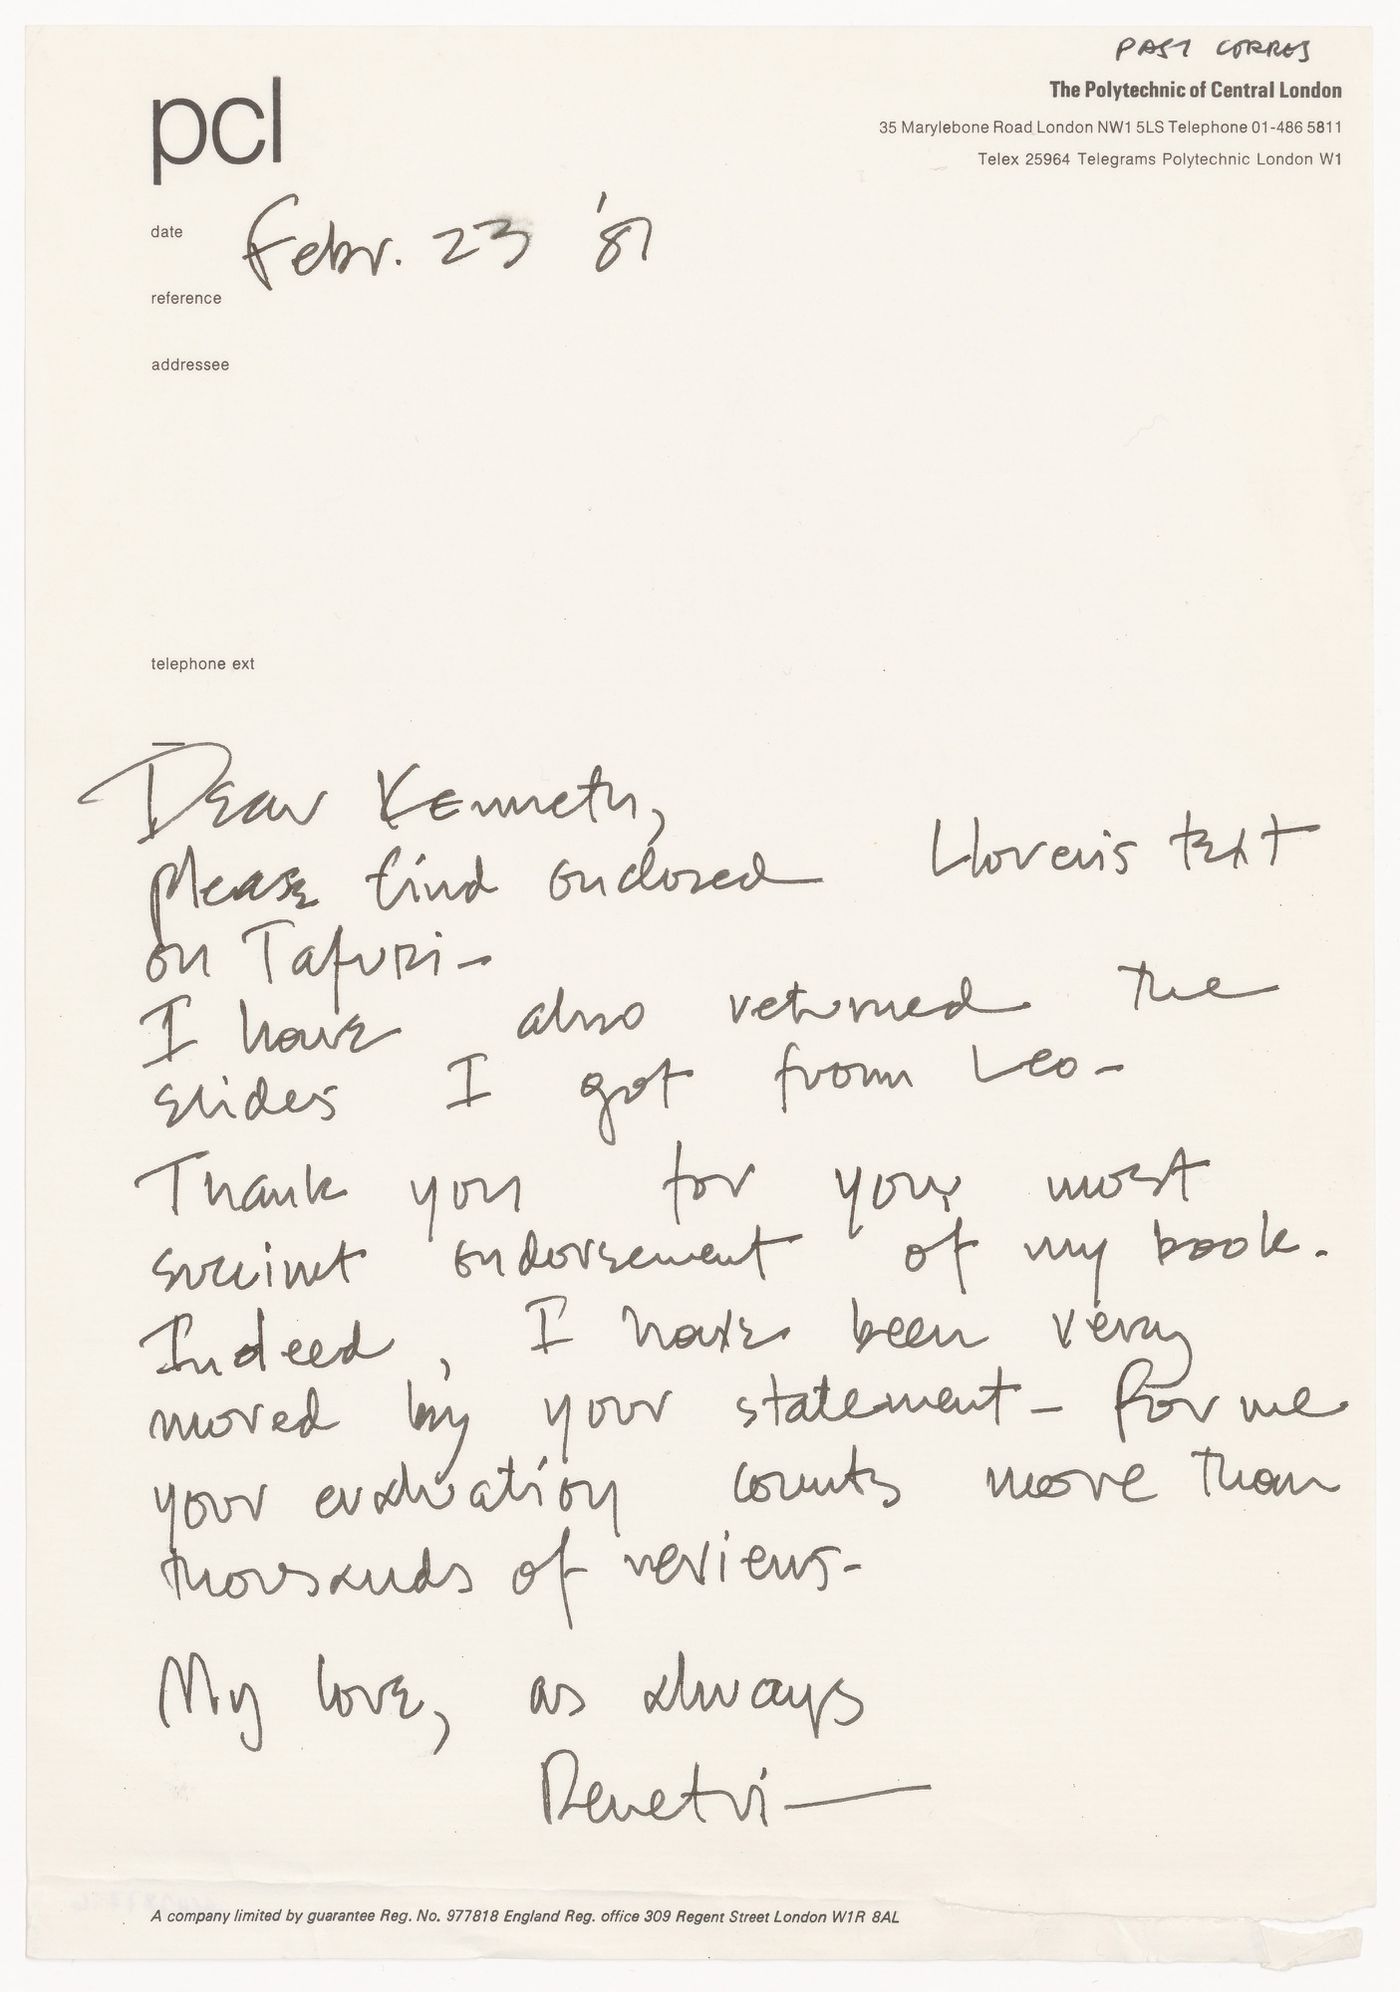 PAST CORRES
pcl
The Polytechnic of Central London
35 Marylebone Road London NW1 5LS Telephone 01-486 5811
Telex 25964 Telegrams Polytechnic London W1
date Febr. 23 '81
reference
addressee
telephone ext
Dear Kenneth,
please find enclosed Llorens text
on Tafuri–
I have also returned the
slides I got from Leo–
Thank you for your most
succinct endorsement of my book.
Indeed, I have been very
moved by your statement– For me
your evaluation counts more than
thousands of reviews–
My love, as always
Demetri—
A company limited by guarantee Reg. No. 977818 England Reg. office 309 Regent Street London W1R 8AL